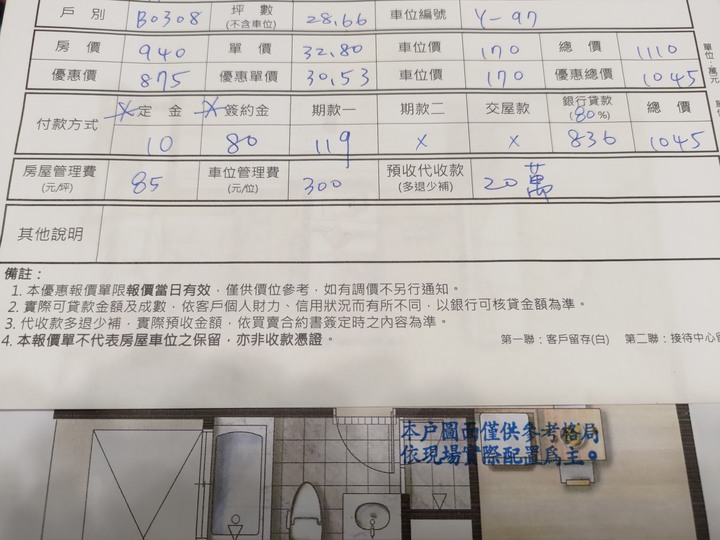 戶別 B0308 坪數(不含車位) 28.66 車位編號 Y-97
房價 940 單價 32.80 車位價 170 總價 1110
單位:萬元
優惠價 875 優惠單價 30.53 車位價 170 優惠總價 1045
付款方式 定金 簽約金 期款一 期款二 交屋款 銀行貸款(80%) 總價
10 80 119 x x 836 1045
房屋管理費(元/坪) 85 車位管理費(元/位) 300 預收代收款(多退少補) 20萬
其他說明
備註:
1. 本優惠報價單限報價當日有效,僅供價位參考,如有調價不另行通知。
2. 實際可貸款金額及成數,依客戶個人財力、信用狀況而有所不同,以銀行可核貸金額為準。
3. 代收款多退少補,實際預收金額,依買賣合約書簽定時之內容為準。
4. 本報價單不代表房屋車位之保留,亦非收款憑證。
第一聯:客戶留存(白) 第二聯:接待中心留
本戶圖面僅供參考格局
依現場實際配置為主。